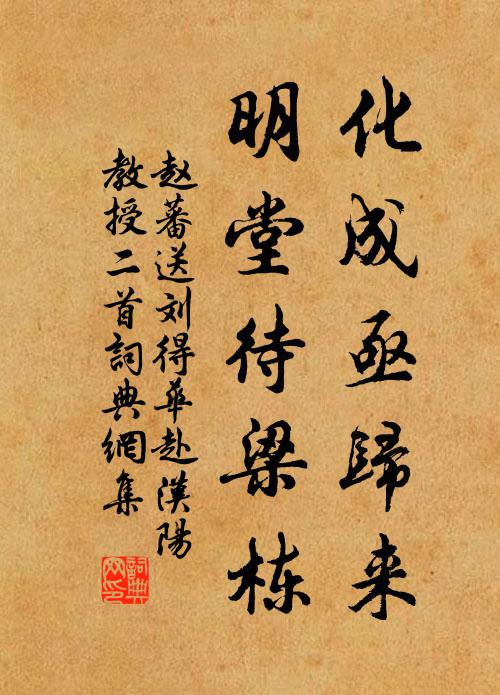 化成亟歸来
明堂待梁栋
赵蕃送刘得华赴漢陽
教授二首詞典網集
詞典网印